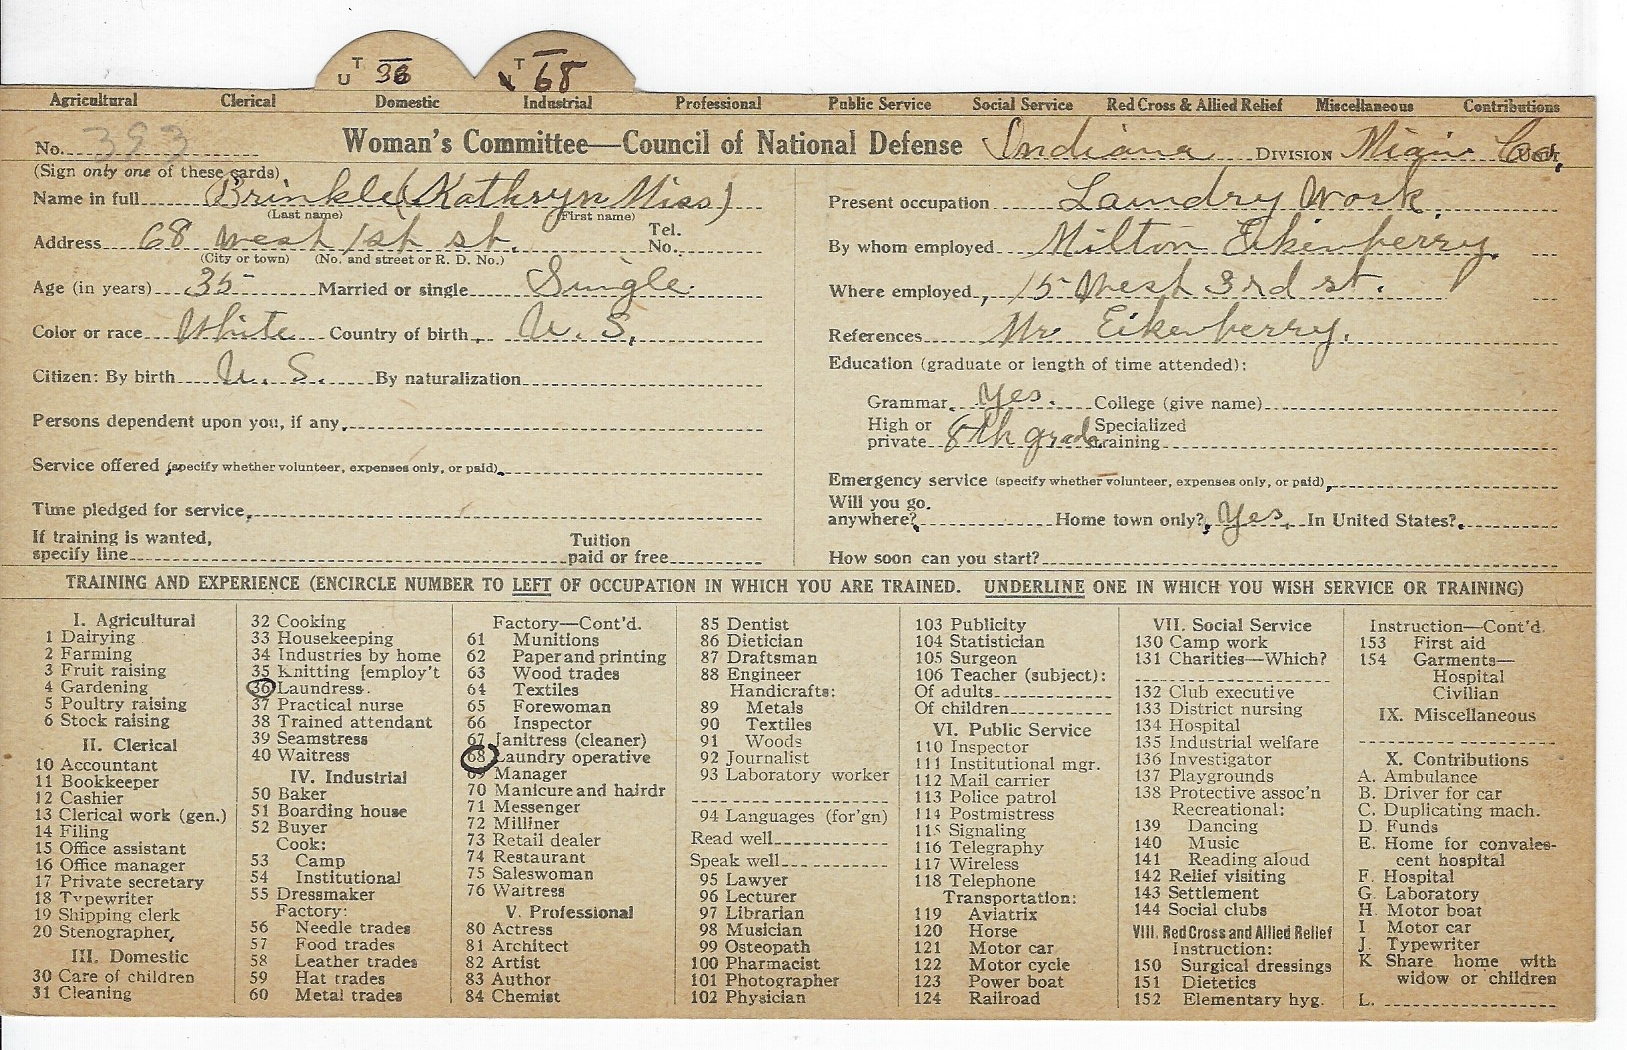 T U 36 T 68
Agricultural Clerical Domestic Industrial Professional Public Service Social Service Red Cross & Allied Relief Miscellaneous Contributions
No. 393 Woman's Committee—Council of National Defense Indiana DIVISION Miami Co.
(Sign only one of these cards)
Name in full Brinkle (Kathryn Miss)
(Last name) (First name)
Address 68 West 1st st. Tel. No.
(City or town) (No. and street or R. D. No.)
Age (in years) 35 Married or single Single
Color or race White Country of birth U. S.
Citizen: By birth U. S. By naturalization
Persons dependent upon you, if any,
Service offered (specify whether volunteer, expenses only, or paid)
Time pledged for service,
If training is wanted, specify line Tuition paid or free
Present occupation Laundry Work.
By whom employed Milton Eikenberry.
Where employed, 15 West 3rd st.
References Mr Eikenberry.
Education (graduate or length of time attended):
Grammar Yes. College (give name)
High or private 8th grade Specialized training
Emergency service (specify whether volunteer, expenses only, or paid),
Will you go anywhere? Home town only? Yes. In United States?
How soon can you start?
TRAINING AND EXPERIENCE (ENCIRCLE NUMBER TO LEFT OF OCCUPATION IN WHICH YOU ARE TRAINED. UNDERLINE ONE IN WHICH YOU WISH SERVICE OR TRAINING)
I. Agricultural
1 Dairying
2 Farming
3 Fruit raising
4 Gardening
5 Poultry raising
6 Stock raising
II. Clerical
10 Accountant
11 Bookkeeper
12 Cashier
13 Clerical work (gen.)
14 Filing
15 Office assistant
16 Office manager
17 Private secretary
18 Typewriter
19 Shipping clerk
20 Stenographer
III. Domestic
30 Care of children
31 Cleaning
32 Cooking
33 Housekeeping
34 Industries by home
35 Knitting [employ't
36 Laundress
37 Practical nurse
38 Trained attendant
39 Seamstress
40 Waitress
IV. Industrial
50 Baker
51 Boarding house
52 Buyer
Cook:
53 Camp
54 Institutional
55 Dressmaker
Factory:
56 Needle trades
57 Food trades
58 Leather trades
59 Hat trades
60 Metal trades
Factory—Cont'd.
61 Munitions
62 Paper and printing
63 Wood trades
64 Textiles
65 Forewoman
66 Inspector
67 Janitress (cleaner)
68 Laundry operative
69 Manager
70 Manicure and hairdr
71 Messenger
72 Milliner
73 Retail dealer
74 Restaurant
75 Saleswoman
76 Waitress
V. Professional
80 Actress
81 Architect
82 Artist
83 Author
84 Chemist
85 Dentist
86 Dietician
87 Draftsman
88 Engineer
Handicrafts:
89 Metals
90 Textiles
91 Woods
92 Journalist
93 Laboratory worker
94 Languages (for'gn)
Read well
Speak well
95 Lawyer
96 Lecturer
97 Librarian
98 Musician
99 Osteopath
100 Pharmacist
101 Photographer
102 Physician
103 Publicity
104 Statistician
105 Surgeon
106 Teacher (subject):
Of adults
Of children
VI. Public Service
110 Inspector
111 Institutional mgr.
112 Mail carrier
113 Police patrol
114 Postmistress
115 Signaling
116 Telegraphy
117 Wireless
118 Telephone
Transportation:
119 Aviatrix
120 Horse
121 Motor car
122 Motor cycle
123 Power boat
124 Railroad
VII. Social Service
130 Camp work
131 Charities—Which?
132 Club executive
133 District nursing
134 Hospital
135 Industrial welfare
136 Investigator
137 Playgrounds
138 Protective assoc'n
Recreational:
139 Dancing
140 Music
141 Reading aloud
142 Relief visiting
143 Settlement
144 Social clubs
VIII. Red Cross and Allied Relief
Instruction:
150 Surgical dressings
151 Dietetics
152 Elementary hyg.
Instruction—Cont'd.
153 First aid
154 Garments—
Hospital
Civilian
IX. Miscellaneous
X. Contributions
A. Ambulance
B. Driver for car
C. Duplicating mach.
D. Funds
E. Home for convales-
cent hospital
F. Hospital
G. Laboratory
H. Motor boat
I Motor car
J. Typewriter
K Share home with
widow or children
L.